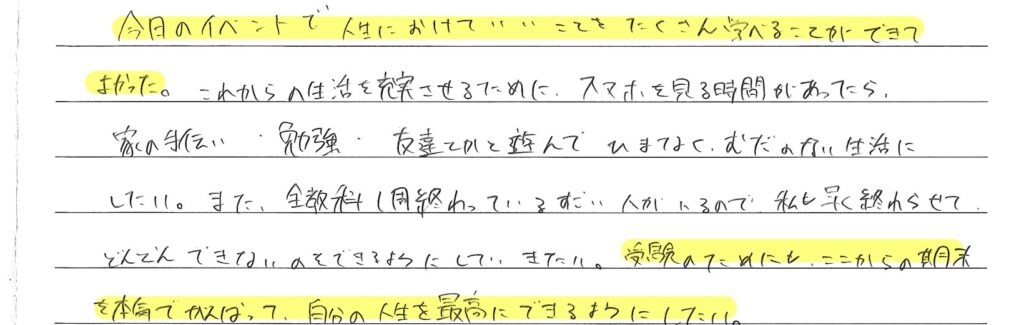 今日のイベントで人生においていいことをたくさん学べることができて
よかった。これからの生活を充実させるために、スマホを見る時間があったら、
家の手伝い・勉強・友達とかと遊んでひまなく、むだのない生活に
したい。また、全教科1周終わっているすごい人がいるので、私も早く終わらせて
どんどんできないのをできるようにしていきたい。受験のためにも、ここからの期末
を本気でがんばって、自分の人生を最高にできるようにしたい。